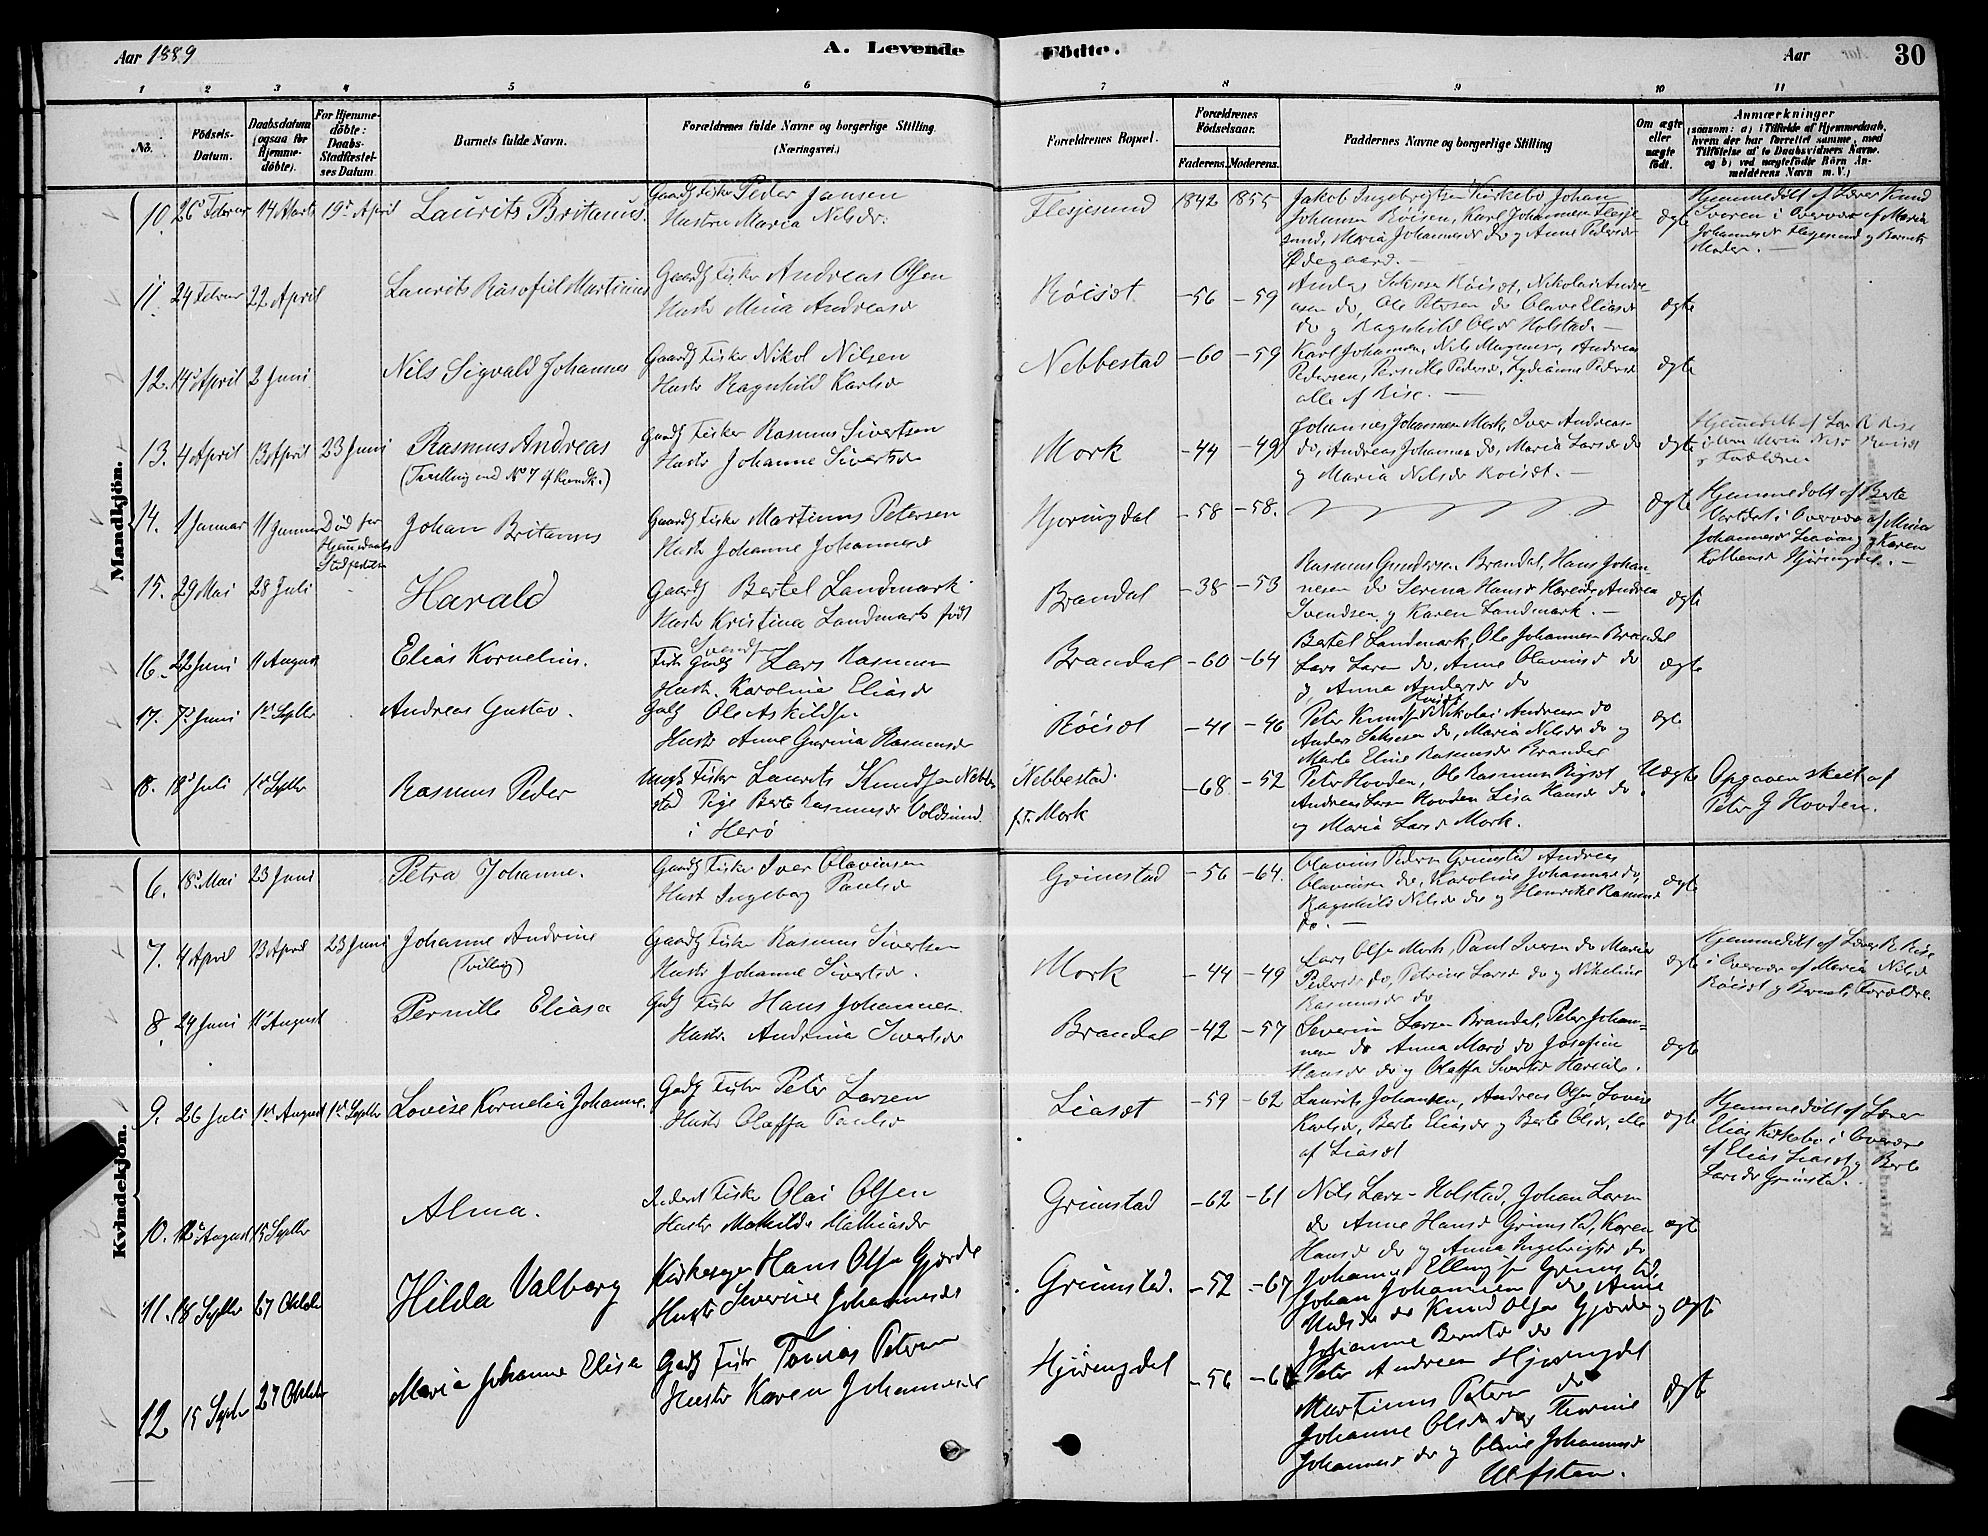 Aar 1889
A. Levende
Födte.
Aar
30
1 2 3 4 5 6 7 8 9 10 11
No.
Födsels-
Datum.
Daabsdatum
(ogsaa for
Hjemme-
döbte).
For Hjemme-
döbte:
Daabs-
Stadfæstel-
ses Datum.
Barnets fulde Navn.
Forældrenes fulde Navne og borgerlige Stilling
(Næringsvei.)
Forældrenes Bopæl.
Forældrenes
Födselsaar.
Faderens. Moderens.
Faddernes Navne og borgerlige Stilling
Om ægte
eller
uægte
födt.
Anmærkninger
(saasom: a) i Tilfælde af Hjemmedaab,
hvem der har forrettet samme, med
Tilföielse af to Daabsvidners Navne,
og b) ved uægtefödte Börn An-
melderens Navn m. V.)
Mandkjön.
10. 26 Februar 14 Marts 19 April Laurits Britanus.
Gaardb Fisker Peder Jansen
Hustru Maria Nilsdr.
Flesjesund 1842 1855
Jakob Ingebrigtsen Kirkebö Johan
Johansen Röisen, Karl Johannesen Flesje
sund, Maria Johannesdr do og Anne Pedersdr
Ödegaard.
ægte
Hjemmedöbt af Lærer Knud
i Overvær af Maria
Johannesdr Flesjesund og Barnets
Moder.
11. 24 Februar 22 April Laurits Rasofiel Martinus
Gaardb Fisker Andreas Olsen
Hustr Mina Andreasdr
Röisæt. -56 -59
Röisæt, Nikolai Andre-
asen do, Ole Petersen do Olave Eliasdr
do og Ragnhild Olsdr Holstad.
ægte
12. 14 April 2 Juni Nils Sigvald Johannes
Gaardb Fisker Nikol Nilsen
Hustr Ragnhild Karlsdr
Nebbestad -60 -59
Karl Johansen, Nils Magnusen, Andreas
Pedersen, Pedersdr, Lydianne Pedersdr
alle af Rise.
ægte
13. 4 April 13 April 23 Juni Rasmus Andreas
(Tvilling med No 7 af Kvindk.)
Gaardb Fisker Rasmus Sivertsen
Hustr Johanne Sivertsdr
Mork -44 -49
Johannes Johannesen Mork, Iver Andreas-
do, Andreas Johannesen do, Maria Larsdr do
og Maria Nilsdr Röisæt.
ægte
Hjemmedöbt af Lær R Rise
Maria Nilsdr Röisæt
og Forældrene
14. 1 Januar 11 Januar Död før
Hjemmedaabs
Stadfæstelse
Johan Britanus
Gaardb Fisker Martinus Petersen
Hustr Johanne Johannesdr
Hjöringdal -58 -58.
ægte
Hjemmedöbt af Berte
i Overvær af Maria
Johannesdr og Karen
Hjöringdal.
15. 29 Mai 28 Juli Harald
Gaardb Bertel Landmark
Hustr Kristina Landmark født
Svendsen
Brandal -38 -53
Rasmus Gundersen Brandal, Hans Johan
nesen do Serina Hansdr Hareide, Andrea
Svendsen og Karen Landmark.
ægte
16. 22 Juni 11 August Elias Kornelius.
Fisk Gaardb Lars Rasmusen
Hustr. Karoline Eliasdr
Brandal -60 -64
Bertel Landmark, Ole Johannesen Brandal
Lars Larsen do, Anne Olavinusdr do
og Anna Andersdr do
ægte
17. 7 Juni 1st Septbr Andreas Gustav.
Gaardb Ole Askildsen
Hustr Anne Gurina Rasmusdr
Röisæt -41 -46
Peter Knudsen Röisæt Nikolai Andreasen do
Anders do, Maria Nilsdr do og
Marte Eline Rasmusdr Brandal
ægte
18. 18 Juli 1st Septbr Rasmus Peder
Ungk Fisker Laurits Knudsen Nebbe-
stad Pige Berte Rasmusdr Voldsund
i Herö
Nebbestad.
f.T. Mork -68 -52
Peter Hovden, Ole Rasmusen
Andreas Larsen Hovden, Lisa Hansdr do
og Maria Larsdr Mork.
Uægte
Opgaven skeet af
Peter G Hovden.
Kvindekjön.
6. 18 Mai 23 Juni Petra Johanne.
Gaardb Fisker Iver Olavinsen
Hustr Ingeborg Paulsdr
Grimstad -56 -64.
Olavius Pedersen Grimstad Andreas
Olavinsen do, Karoline Johannesdr do,
Ragnhild Nilsdr do og Henrikke Rasmusdr
do.
ægte
7. 4 April 13 April 23 Juni Johanne Andrine
(Tvilling)
Gaardb Fisker Rasmus Sivertsen
Hustr Johanne Sivertsdr.
Mork -44 -49
Lars Olsen Mork, Paul Iversen do Maria
Pedersdr do, Petrine Larsdr do og Nikoline
Rasmusdr do
ægte
Hjemmedöbt af Lærer R. Rise
i Overvær af Maria Nilsdr
Röisæt og Barnets Forældre.
8. 24 Juni 11 August Pernille Eliasa
Gaardb Fisk Hans Johannesen
Hustr. Andrina Sivertsdr
Brandal -42 -57
Severin Larsen Brandal, Peter Johan-
nesen do Anna Marö do Josefine
Hansdr do og Olaffa Sivertsdr Hareide.
ægte
9. 26 Juli 1st August 1st Septbr Lovise Kornelia Johanne.
Gaardb Fisker Peter Larsen
Hustr Olaffa Paulsdr
Liasæt -59 -62
Laurits Johansen, Andreas Olsen Lovise
Karlsdr, Berte Eliasdr og Berte Olsdr, alle
af Liasæt
ægte
Hjemmedöbt af Lærer
Elias Kirkebö i Overvær
af Elias Liasæt og Berte
Larsdr Grimstad.
10. August 15 Septbr Alma.
Fisker Olai Olsen
Hustr Mathilde Mathiasdr
Grimstad -62 -61
Nils Larsen Holstad, Johan Larsen
do Anne Hansdr Grimstad, Karen
Hansdr do og Anna Ingebrigtsdr do
ægte
11. 18 Septbr 27 Oktober Hilda Valborg
Kirkesanger Hans Olsen Gjærde
Hustr Severine Johannesdr
Grimstad. -52 -67
Johannes Ellingsen Grimstad,
Johan Johannesen do, Anne
do Knud Olsen Gjærde og
Johanne Berntsdr do
ægte
12 15 Septbr 27 Oktober Maria Johanne Elisa
Gaardb Fisker Tomas Petersen
Hustr Karen Johannesdr
Hjöringdal -56
Peter Andreasen Hjöringdal
Martinus Petersen do
Johanne Olsdr do, Thorine
Johannesdr do og Oline Johannesdr
Ulfsten.
ægte